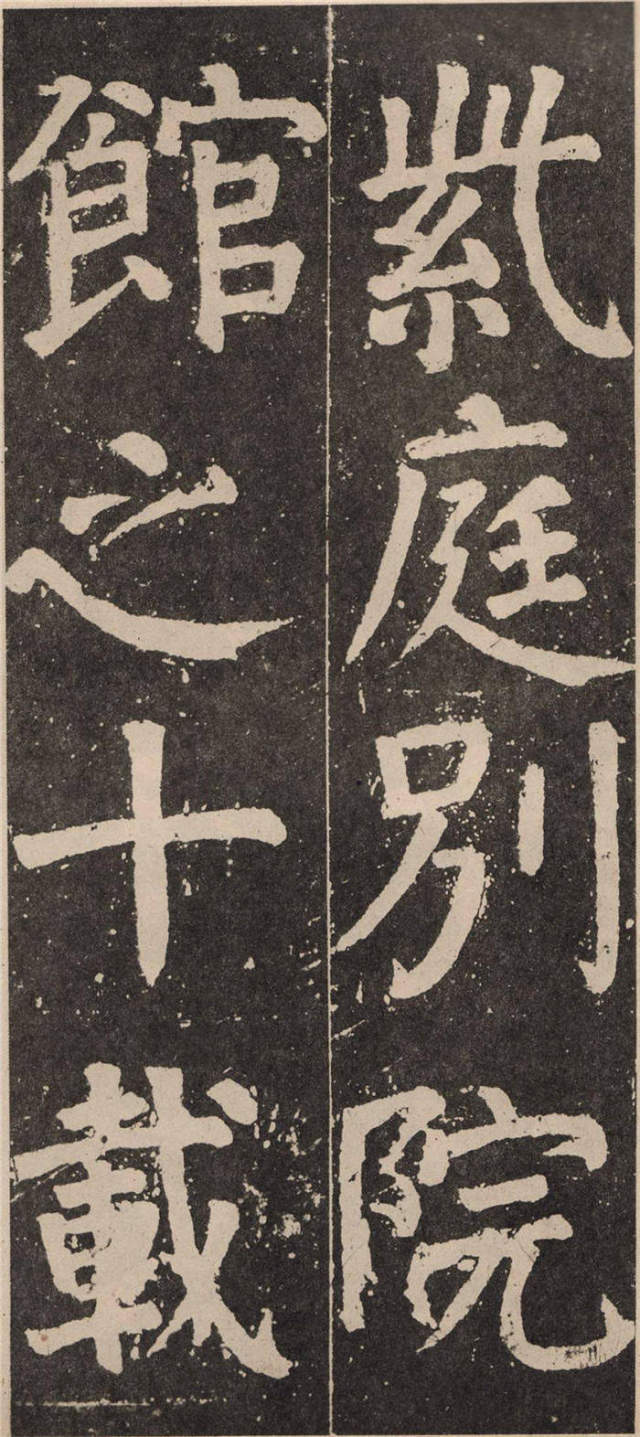 紫庭别院
館之十載